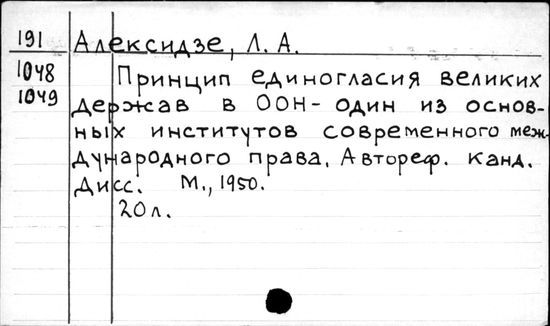 191 Алексидзе, Л. А.
1048 Принцип единогласия великих
1049 держав в ООН - один из основ-
ных институтов современного меж-
дународного права. Автореф. канд.
дисс. М., 1950.
20 л.